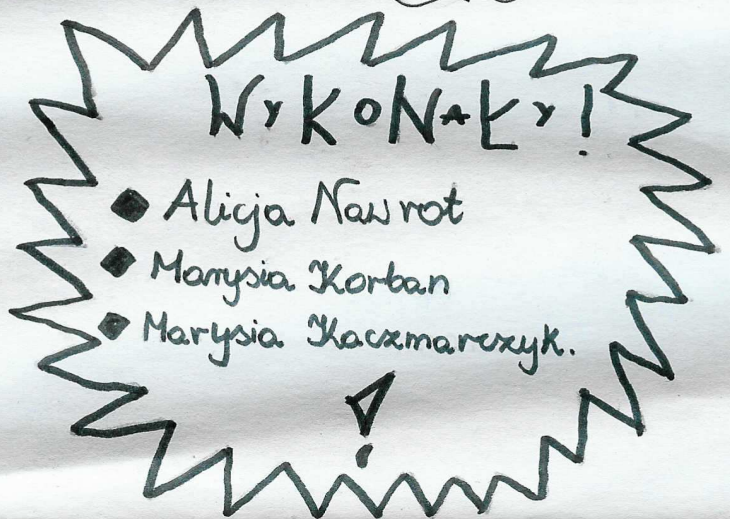 WyKoNaŁy!
Alicja Nawrot
Marysia Korban
Marysia Kaczmarczyk.
!